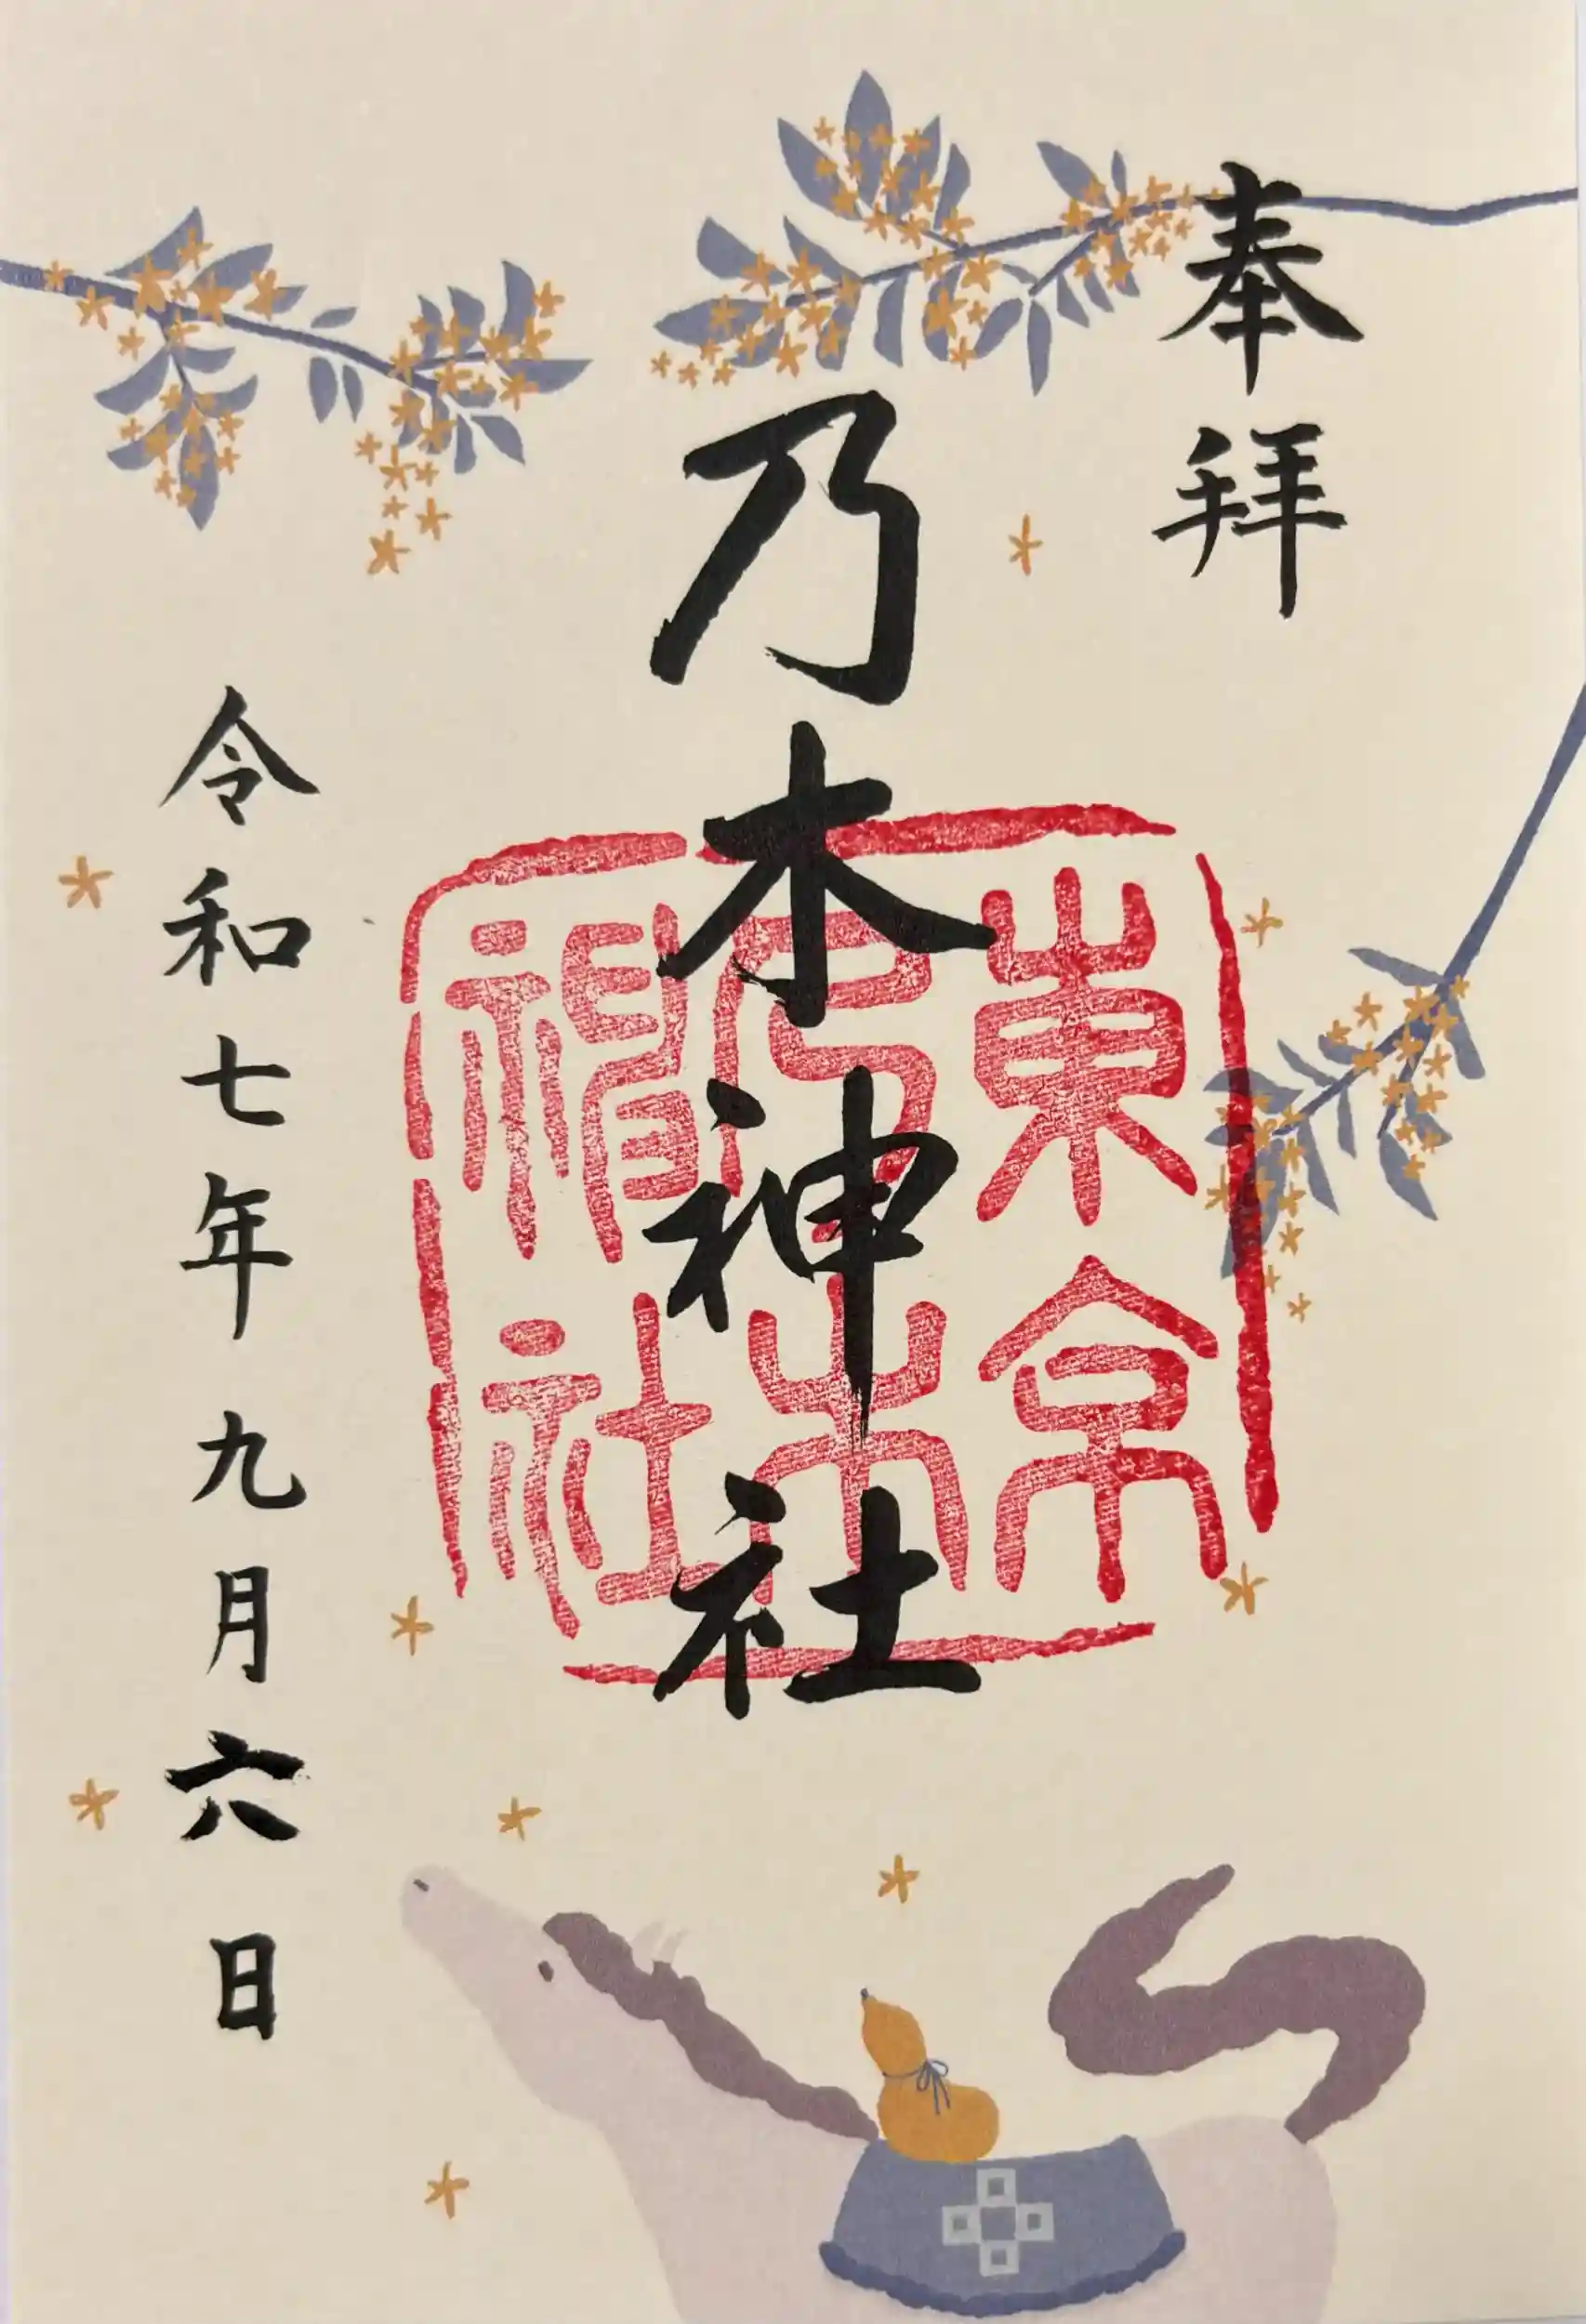 奉拝
乃木神社
東京乃木神社
令和七年九月六日